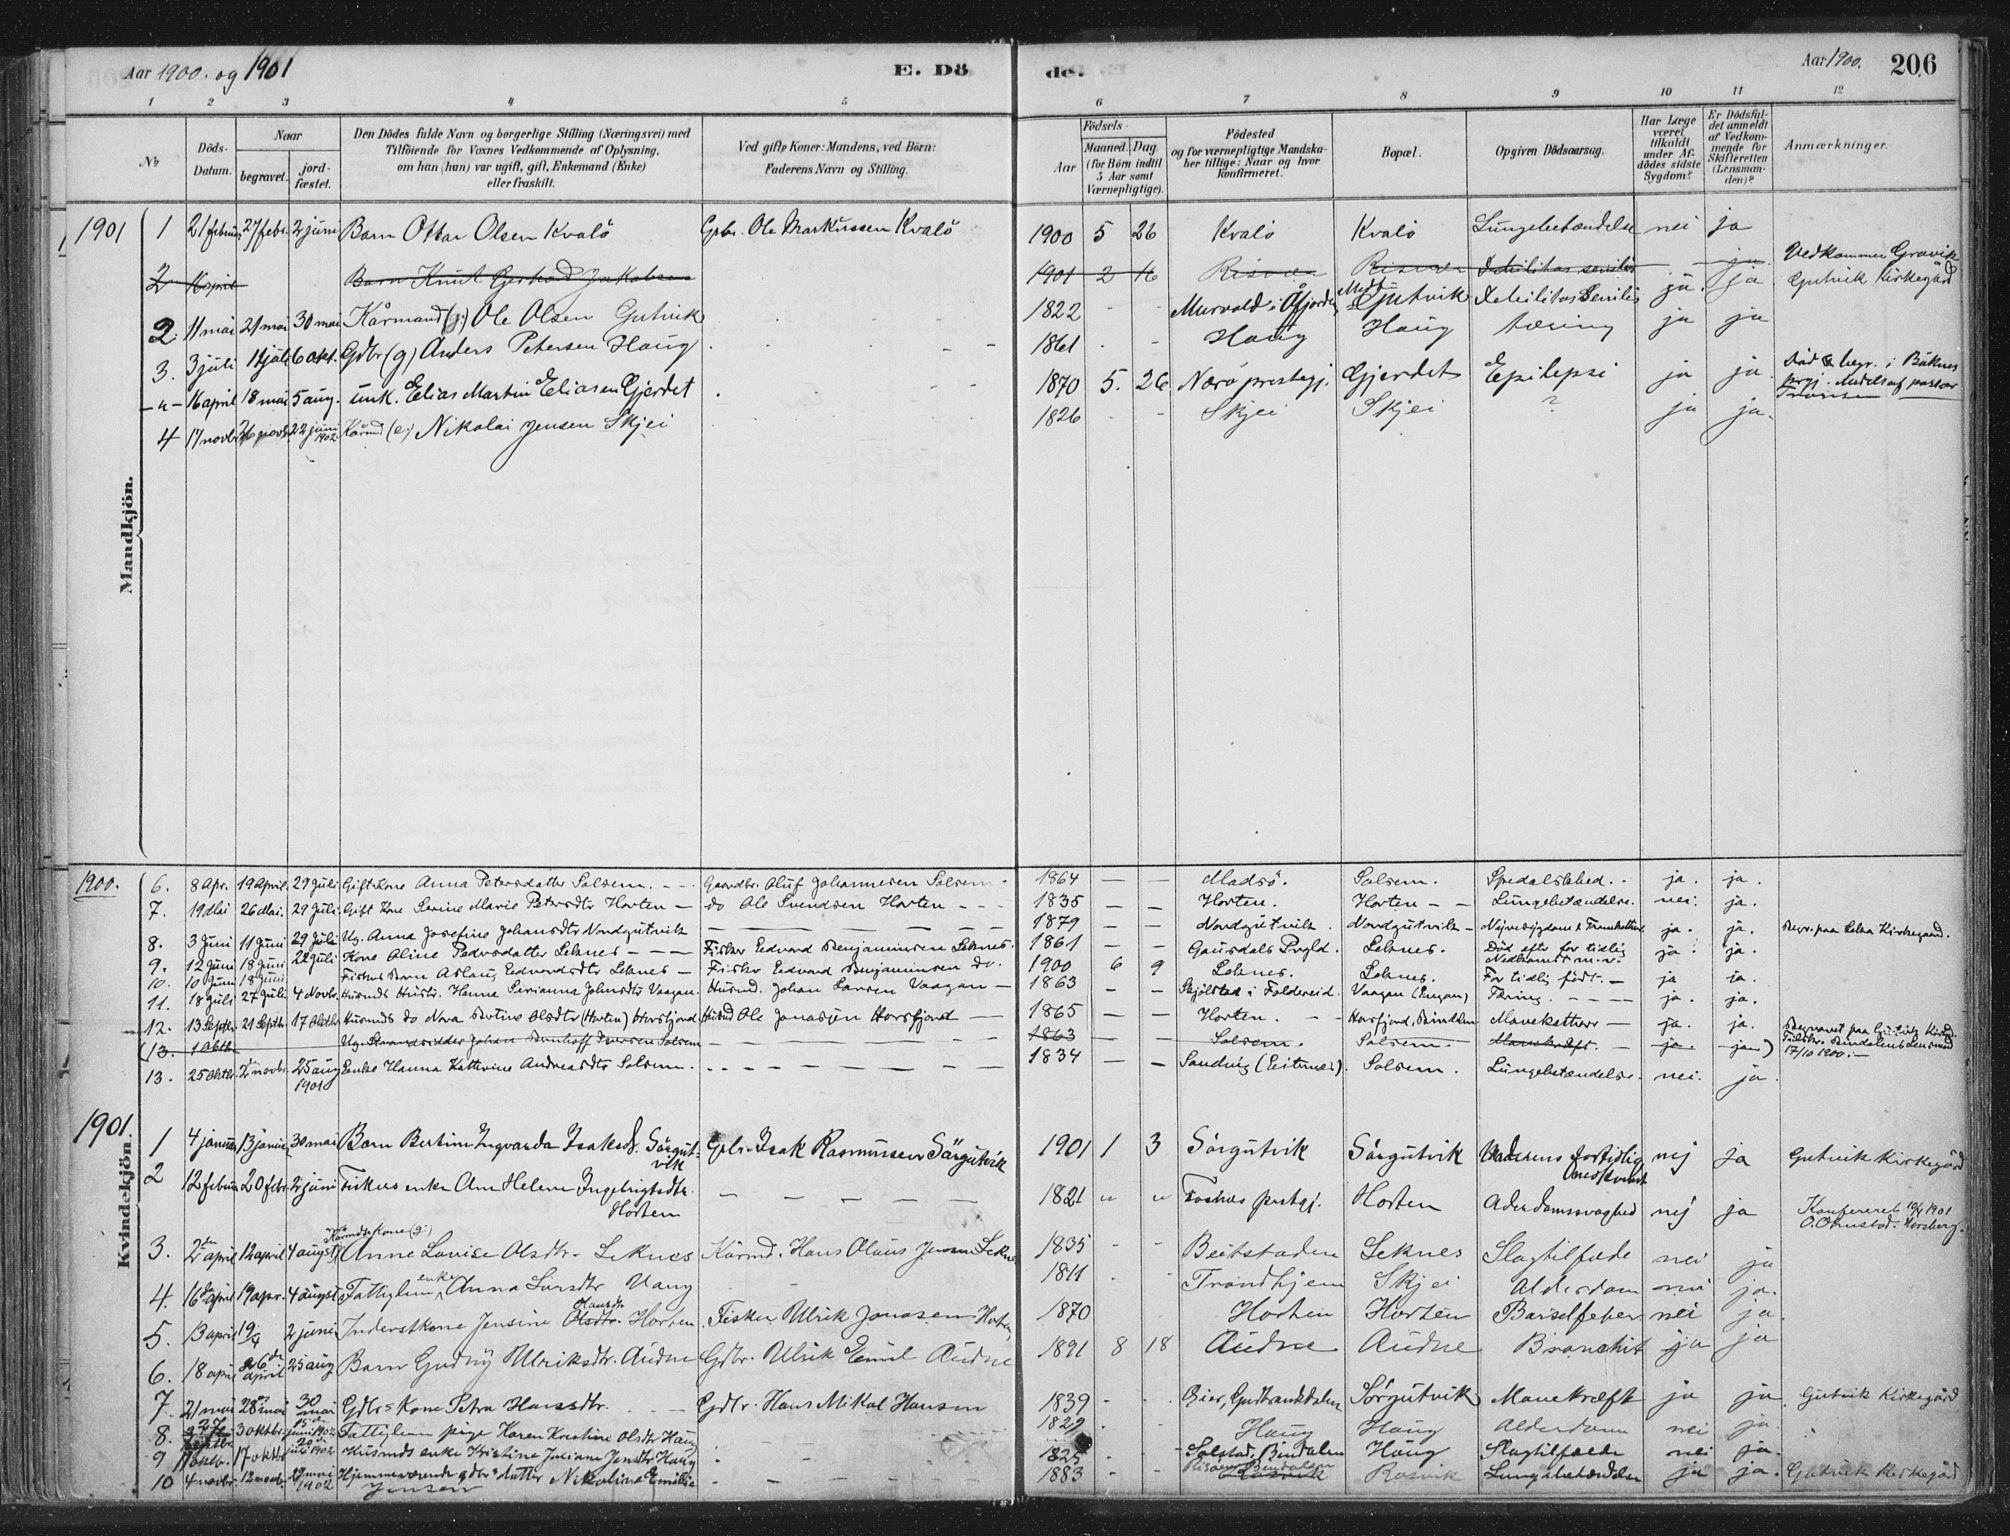 Aar 1900. og 1901
E. Dö
de.
Aar 1900.
206
1 2 3 4 5 6 7 8 9 10 11 12
No
Döds-Datum.
Naar
begravet.
jordfæstet.
Den Dödes fulde Navn og borgerlige Stilling (Næringsvei) med
Tilföiende for Voxnes Vedkommende af Oplysning,
om han (hun) var ugift, gift, Enkemand (Enke)
eller fraskilt.
Ved gifte Koner: Mandens, ved Börn:
Faderens Navn og Stilling.
Födsels-
Aar
Maaned. Dag.
(for Börn indtil
5 Aar samt
Værnepligtige).
Födested
og for værnepligtige Mandskaber tillige: Naar og hvor
konfirmeret.
Bopæl.
Opgiven Dödsaarsag.
Har Læge
været
tilkaldt
under Afdödes sidste
Sygdom?
Er Dödsfaldet anmeldt
af Vedkommende for
Skifteretten
(Lensmanden)?
Anmærkninger.
Mandkjön.
1901 1 21 februar 27 febr. 2 juni Barn Ottar Olsen Kvalö Gbr. Ole Markussen Kvalö 1900 5 26 Kvalö Kvalö Lungebetændelse nei ja
2 16 april Barn Knut Gerhard Jakobsen 1901 2 16 Risvær Risvær Debilitas senilis ja Vedkommer Gravik
2. 11 mai 21 mai 30 mai Kårmand (g.) Ole Olsen Gutvik 1822 - - Murvold i Åfjorden Gutvik Debilitas Senilis ja ja Gutvik Kirkegård
3. 3 juli 11 juli 6 okt. Gdbr (g) Anders Petersen Haug 1861 Haug Haug tæring ja ja
-"- 16 april 18 mai 5 aug. unk. Elias Martin Eliasen Gjerdet 1870 5. 26 Nærö prestegj. Gjerdet Epilepsi ja ja Död & begr. i
4 17 novbr 26 novb. 22 juni 1902 Kårmd (e.) Nikolai Jensen Skjei 1826 - - Skjei Skjei ? ja ja.
Kvindekjön.
1900. 6. 8 Apr. 19 April. 29 Juli Gift Kone Anna Petersdatter Solsem. Gaardbr. Oluf Johannesen Solsem. 1864 — — Madsö. Solsem. Spedalskhed. ja. ja.
7. 19 Mai 26 Mai. 29 Juli Gift Kone Serine Marie Petersdtr Horten — do Ole Svendsen Horten 1835 — — Horten. Horten — Lungebetændelse. nei. ja.
8. 3 Juni 11 Juni 29 Juli Ug. Anna Josefine Johansdtr Nordgutvik 1879 — — Nordgutvik. Nordgutvik ja. ja. Begr. paa Leka Kirkegaard.
9. 12 Juni 18 Juni 22 Juli Kone Aline Pedersdatter Leknes — Fisker Edvard Benjaminsen Leknes. 1861 — — Gausdals Prgld. Leknes. Död efter for tidlig Nedkomst m.v. ja. ja.
10. 10 Juni 18 Juni Fiskers Barn Aslaug Edvardsdtr Leknes — Fisker Edvard Benjaminsen do. 1900 6 9 Leknes. Leknes. For tidlig födt. — ja ja.
11. 18 Juli 27 Juli 4 Novbr. Husmds Hustr. Hanna Serianna Johnsdtr Vaagan. Husmd. Johan Larsen Vaagan — 1863 — — i Foldereid. Vaagan Tæring. ja. ja.
12. 13 Septbr. 21 Septbr. 17 Oktbr Husmds do Nora Bertine Olsdtr (Horten) Horsfjord Husmd Ole Jonassen Horsfjord — 1865 — — Horten. Horsfjord, Bindalen Mavekatarr — ja. ja.
(13. 1 Oktbr. Ug. Johan Iversen Solsem 1863 — Solsem. Solsem. Mavekræft. — ja. ja)
13. 25 Oktbr. 2 novbr. 25 aug 1901 Enke Hanna Kathrine Andreasdtr Solsem. 1834 — Sandvig (Leiternes). Solsem. Lungebetændelse. nei. ja.
1901 1 4 januar 13 januar 30 mai Barn Bertine Ingvarda Isaksdt. Sörgutvik Gbr. Isak Rasmussen Sörgutvik 1901 1 3 Sörgutvik Sörgutvik Moderens fortidlig nej ja Gutvik Kirkegård
2 12 februar 20 febr. 2 juni Fiskers enke Ane Helene Ingebrigtsdtr. Horten 1821 " " Fosnes prestgj. Horten Alderdomssvaghed nej ja
3. 2den april 12 april 4 august Kårmds Kone (g.) Anne Lovise Olsdtr. Leknes Kårmd. Hans Olaus Jensen Leknes 1835 - - Beitstaden Leknes Slagtilfælde nei ja
4. 16de april 19 apr. 4 august Fattiglem, enke Anna Larsdtr Haug 1811 - - Trondhjem Skjei Alderdom nei ja.
5. 13 april 19/4 2 juni Inderstkone Jensine Hansdtr Olsdtr. Horten Fisker Ulrik Jonasen Horten 1870 Horten Horten Barselfeber nei ja
6. 18 april 26de april 25 aug Barn Gudny Ulriksdtr. Audne Gdbr. Ulrik Emil Audne 1891 8 18 Audne Audne Bronchit ja ja
7. 21 mai 28 mai 30 mai Gdbrs Kone Petra Hansdtr. Gdbr. Hans Mikal Hansen 1839 - - Gudbrandsdalen Sörgutvik Mavekræft ja ja Gutvik Kirkegård
8. 27 septbr 3 oktbr. 15de juni 1902 Fattiglem pige Karen Kristine Olsdtr Haug 1829 - - Haug Haug Alderdom nei ja.
9 11 oktbr. 17 oktbr 20de juli 1902 Husmds enke Kristine Juliane Jensdtr Haug 1825 - - Solstad, Bindalen Haug Slagtilfælde nei ja.
10 4 novbr. 12 novb. 19 mai 1902 Hjemmeværende gdbr's datter Nikoline Emilie Jensen 1883 - - Bindalen Rosvik Lungebetændelse ja ja. Gutvik Kirkegård